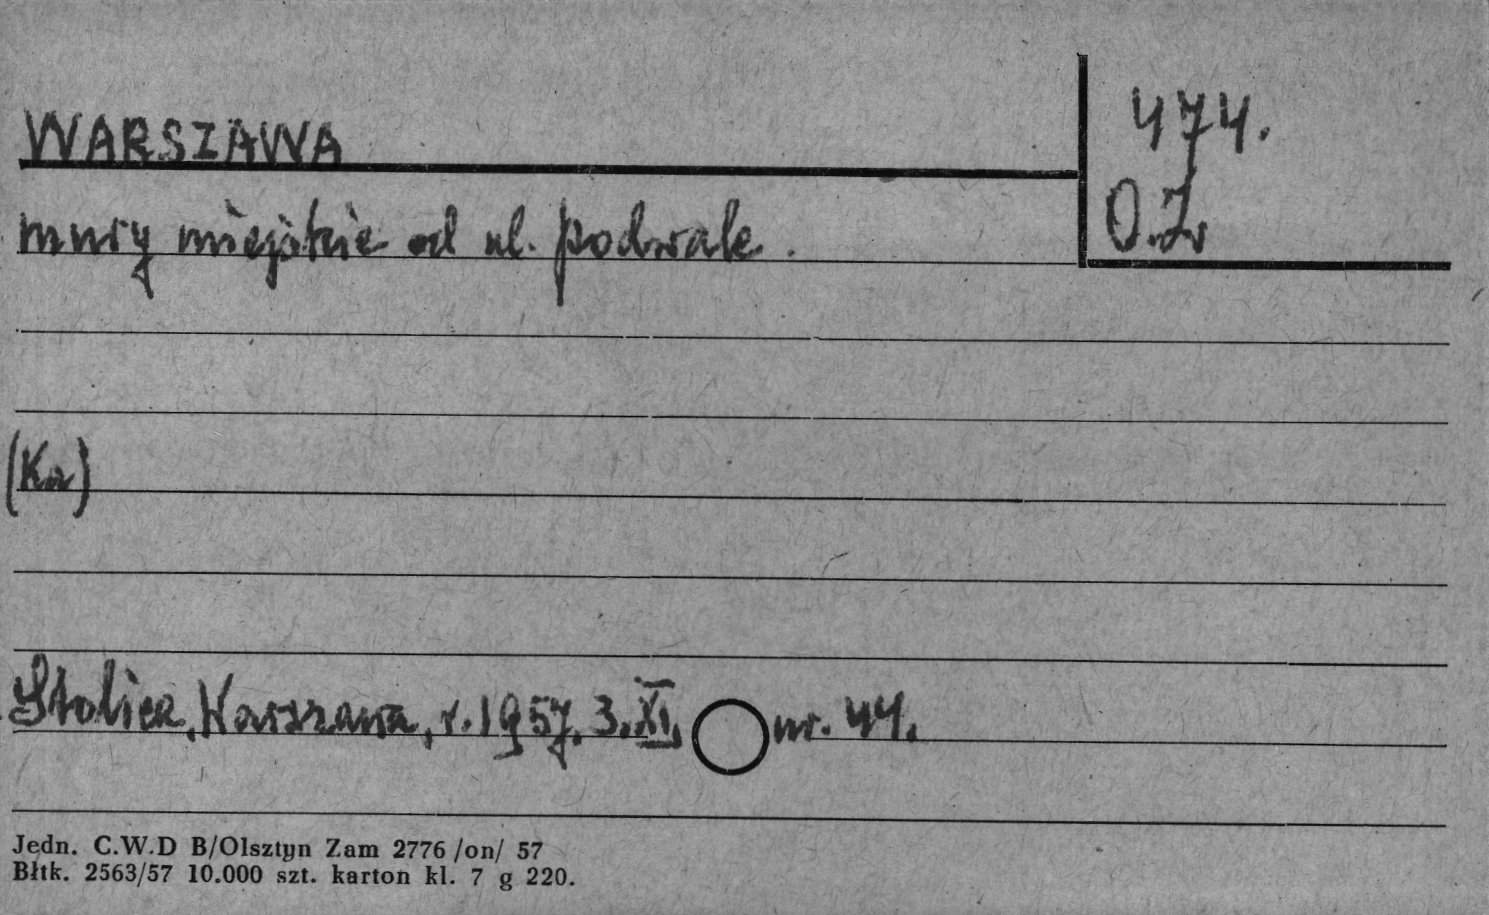 WARSZAWA
474.
O.Z.
mury miejskie od ul. podwale.
(Ka)
Stolica, Warszawa, r. 1957. 3.XI. nr. 44.
Jedn. C.W.D B/Olsztyn Zam 2776 /on/ 57
Błtk. 2563/57 10.000 szt. karton kl. 7 g 220.